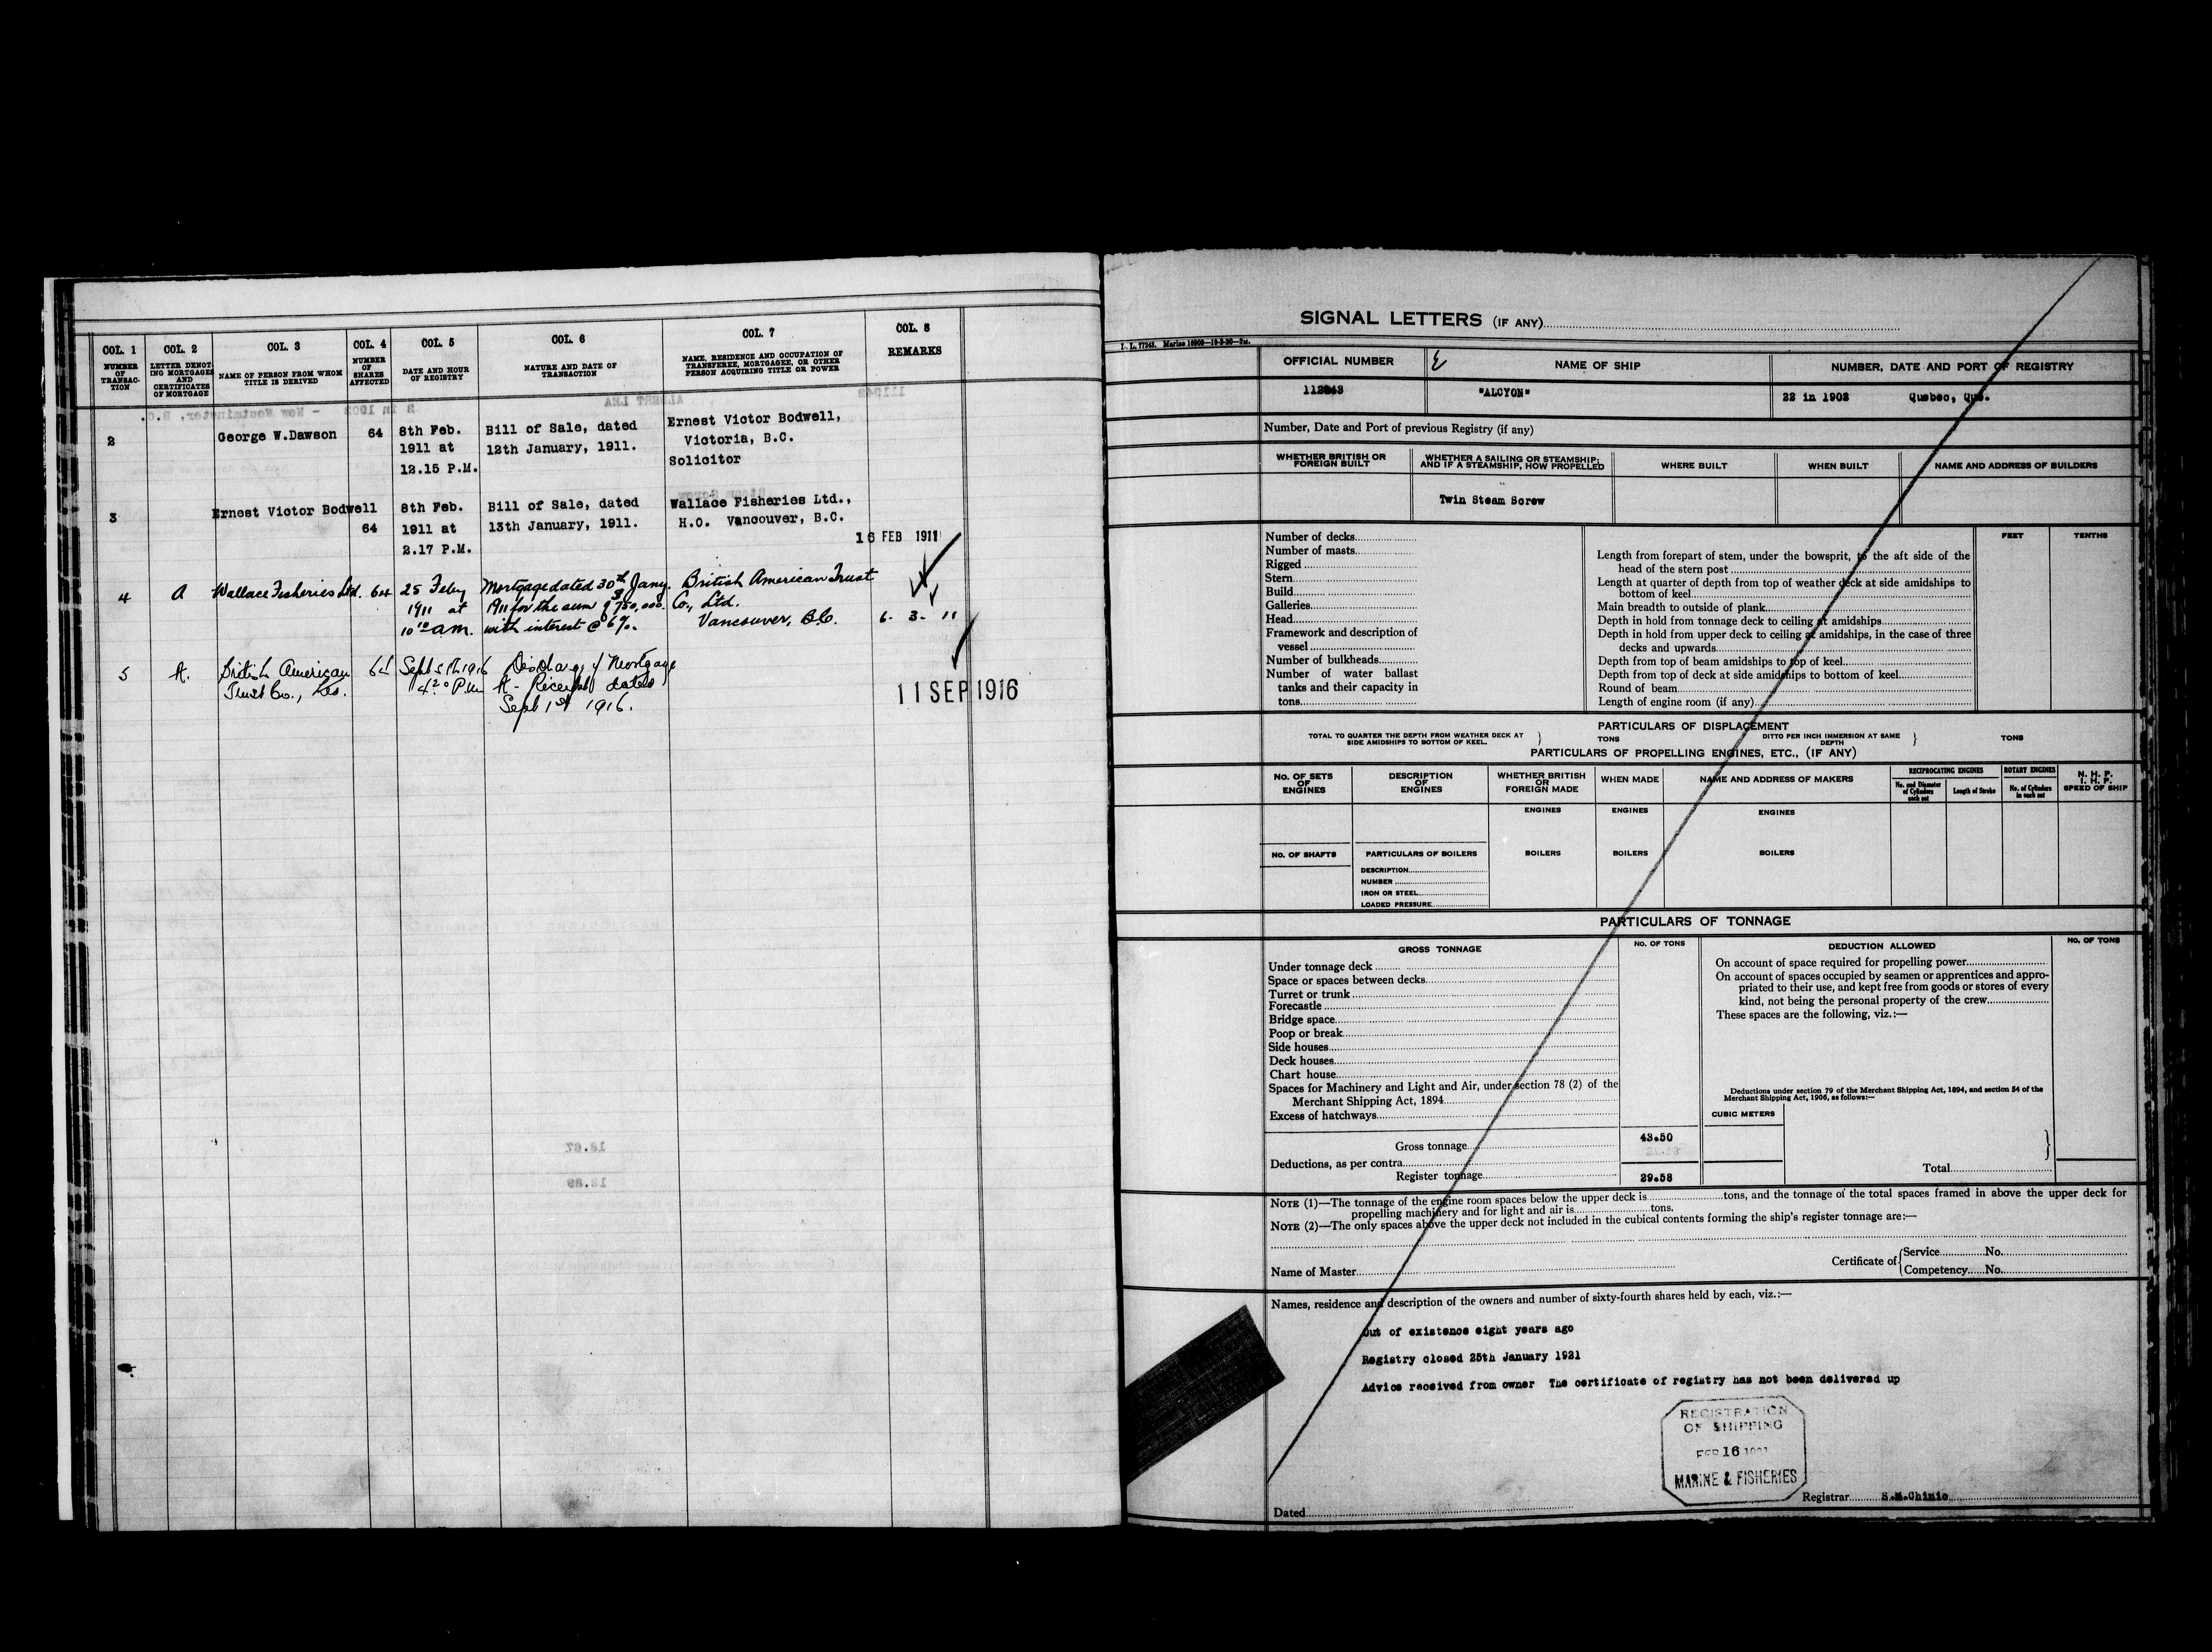 COL. 1 COL. 2 COL. 3 COL. 4 COL. 5 COL. 6 COL. 7 COL. 8
NUMBER OF TRANSAC-TION
LETTER DENOTING MORTGAGES AND CERTIFICATES OF MORTGAGE
NAME OF PERSON FROM WHOM TITLE IS DERIVED
NUMBER OF SHARES AFFECTED
DATE AND HOUR OF REGISTRY
NATURE AND DATE OF TRANSACTION
NAME, RESIDENCE AND OCCUPATION OF TRANSFEREE, MORTGAGEE, OR OTHER PERSON ACQUIRING TITLE OR POWER
REMARKS
2 George W.Dawson 64 8th Feb. Bill of Sale, dated Ernest Victor Bodwell,
1911 at 12th January, 1911. Victoria, B.C.
12.15 P.M. Solicitor
3 Ernest Victor Bodwell 8th Feb. Bill of Sale, dated Wallace Fisheries Ltd.,
64 1911 at 13th January, 1911. H.O. Vancouver, B.C.
2.17 P.M. 16 FEB 1911
4 A Wallace Fisheries Ltd. 64 25 Feby Mortgage dated 30th Jany. British American Trust
1911 at 1911 for the sum of $750,000. Co., Ltd.
10 10 a.m. with interest @ 6%. Vancouver, B.C. 6. 3. 11
5 A. British American 64 Sept 5th 1916 Discharge of Mortgage
Trust Co., Ltd. 4 20 P.M. A - Receipt dated
Sept 1st 1916. 11 SEP 1916
SIGNAL LETTERS (IF ANY)
I. L. 77343. Marine 16900—19-3-20—2M.
OFFICIAL NUMBER NAME OF SHIP NUMBER, DATE AND PORT OF REGISTRY
"ALCYON" 22 in 1902 Quebec, Que.
Number, Date and Port of previous Registry (if any)
WHETHER BRITISH OR FOREIGN BUILT
WHETHER A SAILING OR STEAMSHIP; AND IF A STEAMSHIP, HOW PROPELLED
WHERE BUILT
WHEN BUILT
NAME AND ADDRESS OF BUILDERS
Twin Steam Screw
Number of decks
Number of masts
Rigged
Stern
Build
Galleries
Head
Framework and description of
vessel
Number of bulkheads
Number of water ballast
tanks and their capacity in
tons
FEET TENTHS
Length from forepart of stem, under the bowsprit, to the aft side of the
head of the stern post
Length at quarter of depth from top of weather deck at side amidships to
bottom of keel
Main breadth to outside of plank
Depth in hold from tonnage deck to ceiling at amidships
Depth in hold from upper deck to ceiling at amidships, in the case of three
decks and upwards
Depth from top of beam amidships to top of keel
Depth from top of deck at side amidships to bottom of keel
Round of beam
Length of engine room (if any)
PARTICULARS OF DISPLACEMENT
TOTAL TO QUARTER THE DEPTH FROM WEATHER DECK AT SIDE AMIDSHIPS TO BOTTOM OF KEEL. } TONS DITTO PER INCH IMMERSION AT SAME DEPTH } TONS
PARTICULARS OF PROPELLING ENGINES, ETC., (IF ANY)
NO. OF SETS OF ENGINES
DESCRIPTION OF ENGINES
WHETHER BRITISH OR FOREIGN MADE
WHEN MADE
NAME AND ADDRESS OF MAKERS
RECIPROCATING ENGINES
No. and Diameter of Cylinders each set
Length of Stroke
ROTARY ENGINES
No. of Cylinders in each set
N. H. P.
I. H. P.
SPEED OF SHIP
ENGINES ENGINES ENGINES
NO. OF SHAFTS PARTICULARS OF BOILERS BOILERS BOILERS BOILERS
DESCRIPTION
NUMBER
IRON OR STEEL
LOADED PRESSURE
PARTICULARS OF TONNAGE
GROSS TONNAGE NO. OF TONS DEDUCTION ALLOWED NO. OF TONS
Under tonnage deck
Space or spaces between decks
Turret or trunk
Forecastle
Bridge space
Poop or break
Side houses
Deck houses
Chart house
Spaces for Machinery and Light and Air, under section 78 (2) of the
Merchant Shipping Act, 1894
Excess of hatchways
Gross tonnage 43.50
Deductions, as per contra
Register tonnage 29.58
On account of space required for propelling power
On account of spaces occupied by seamen or apprentices and appro-
priated to their use, and kept free from goods or stores of every
kind, not being the personal property of the crew
These spaces are the following, viz.:—
Deductions under section 79 of the Merchant Shipping Act, 1894, and section 54 of the
Merchant Shipping Act, 1906, as follows:—
CUBIC METERS
Total
NOTE (1)—The tonnage of the engine room spaces below the upper deck is tons, and the tonnage of the total spaces framed in above the upper deck for
propelling machinery and for light and air is tons.
NOTE (2)—The only spaces above the upper deck not included in the cubical contents forming the ship's register tonnage are:—
Name of Master
Certificate of { Service No.
Competency No.
Names, residence and description of the owners and number of sixty-fourth shares held by each, viz.:—
Out of existence eight years ago
Registry closed 25th January 1921
Advice received from owner The certificate of registry has not been delivered up
REGISTRATION
OF SHIPPING
FEB 16 1921
MARINE & FISHERIES
Dated
Registrar S.M.Chinic